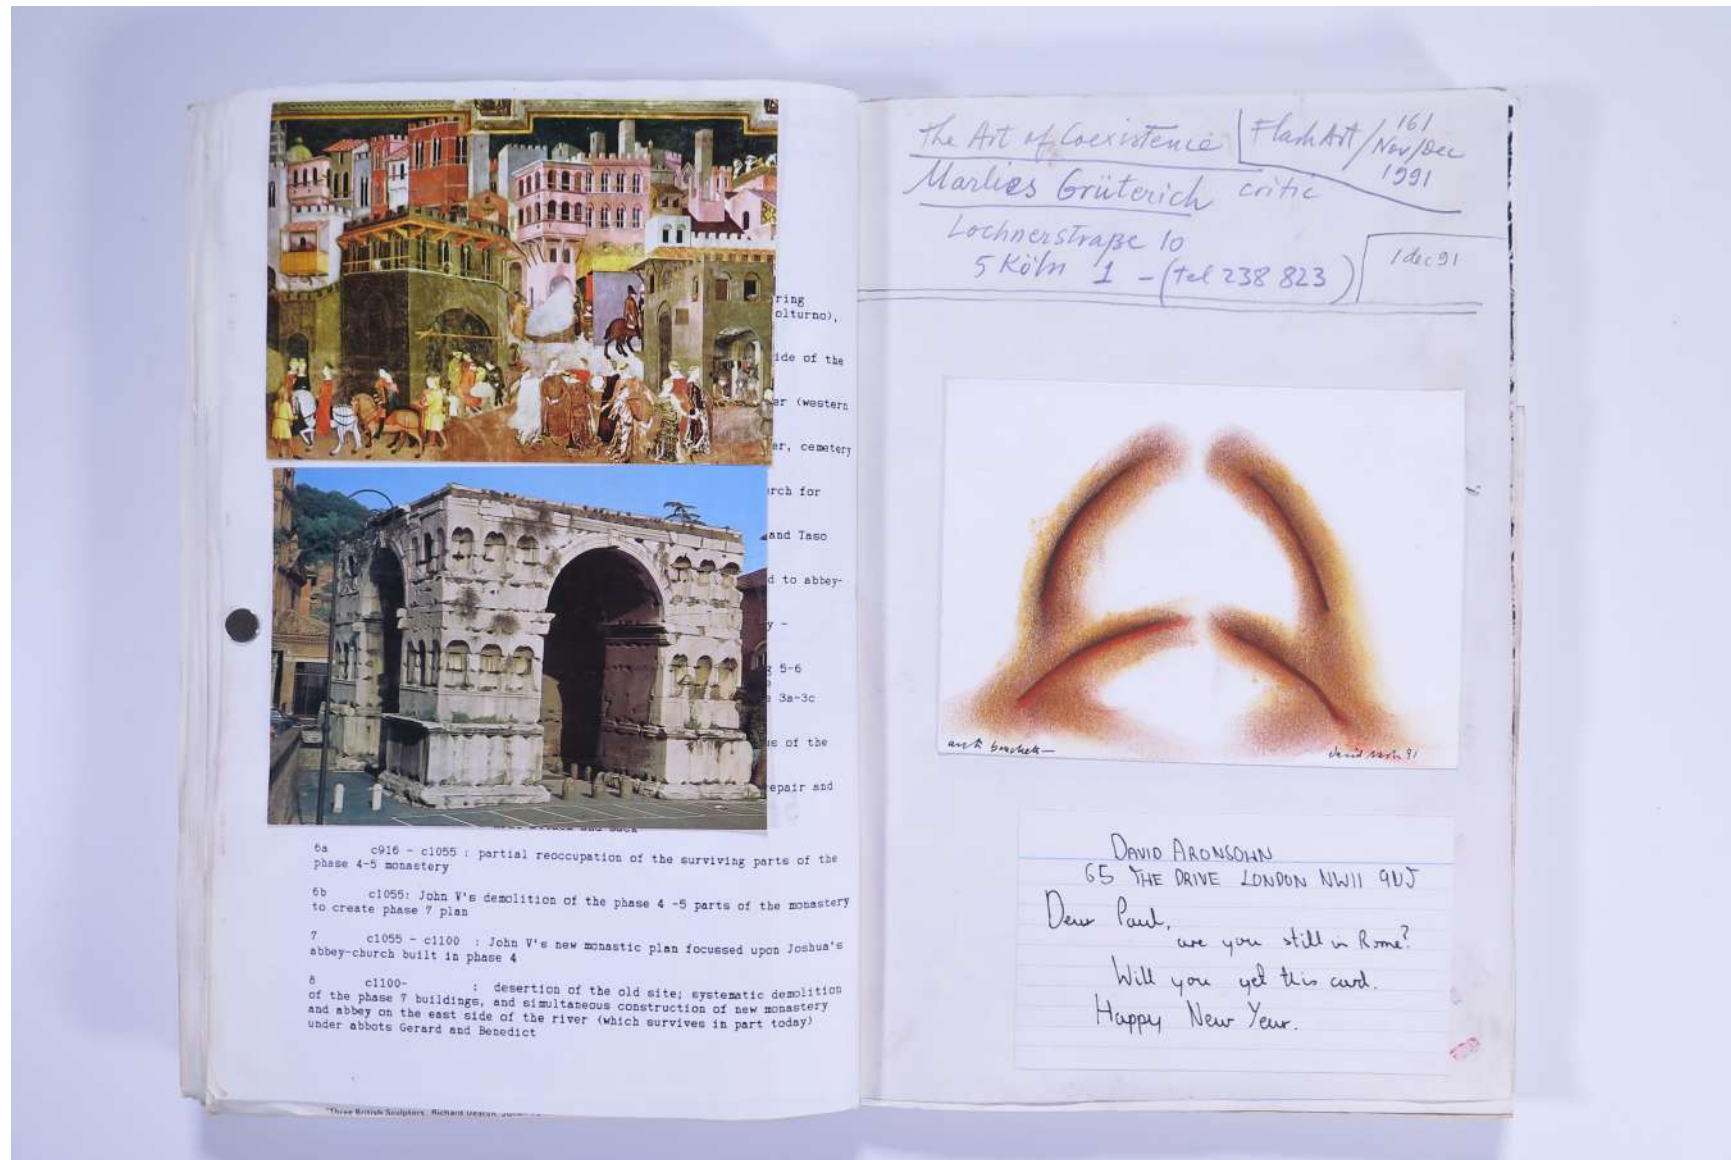 ring
olturno),
ide of the
er (western
er, cemetery
rch for
and Taso
d to abbey-
y -
g 5-6
e 3a-3c
us of the
repair and
6a c916 - c1055 : partial reoccupation of the surviving parts of the
phase 4-5 monastery
6b c1055: John V's demolition of the phase 4 -5 parts of the monastery
to create phase 7 plan
7 c1055 - c1100 : John V's new monastic plan focussed upon Joshua's
abbey-church built in phase 4
8 c1100- : desertion of the old site; systematic demolition
of the phase 7 buildings, and simultaneous construction of new monastery
and abbey on the east side of the river (which survives in part today)
under abbots Gerard and Benedict
"Three British Sculptors, Richard Deacon,
The Art of Coexistence Flash Art / 161
Nov/Dec
1991
Marlies Grüterich critic
Lochnerstraße 10
5 Köln 1 - (tel 238 823)
1 dec 91
david nash 91
DAVID ARONSOHN
65 THE DRIVE LONDON NW11 9UJ
Dear Paul,
are you still in Rome?
Will you get this card.
Happy New Year.